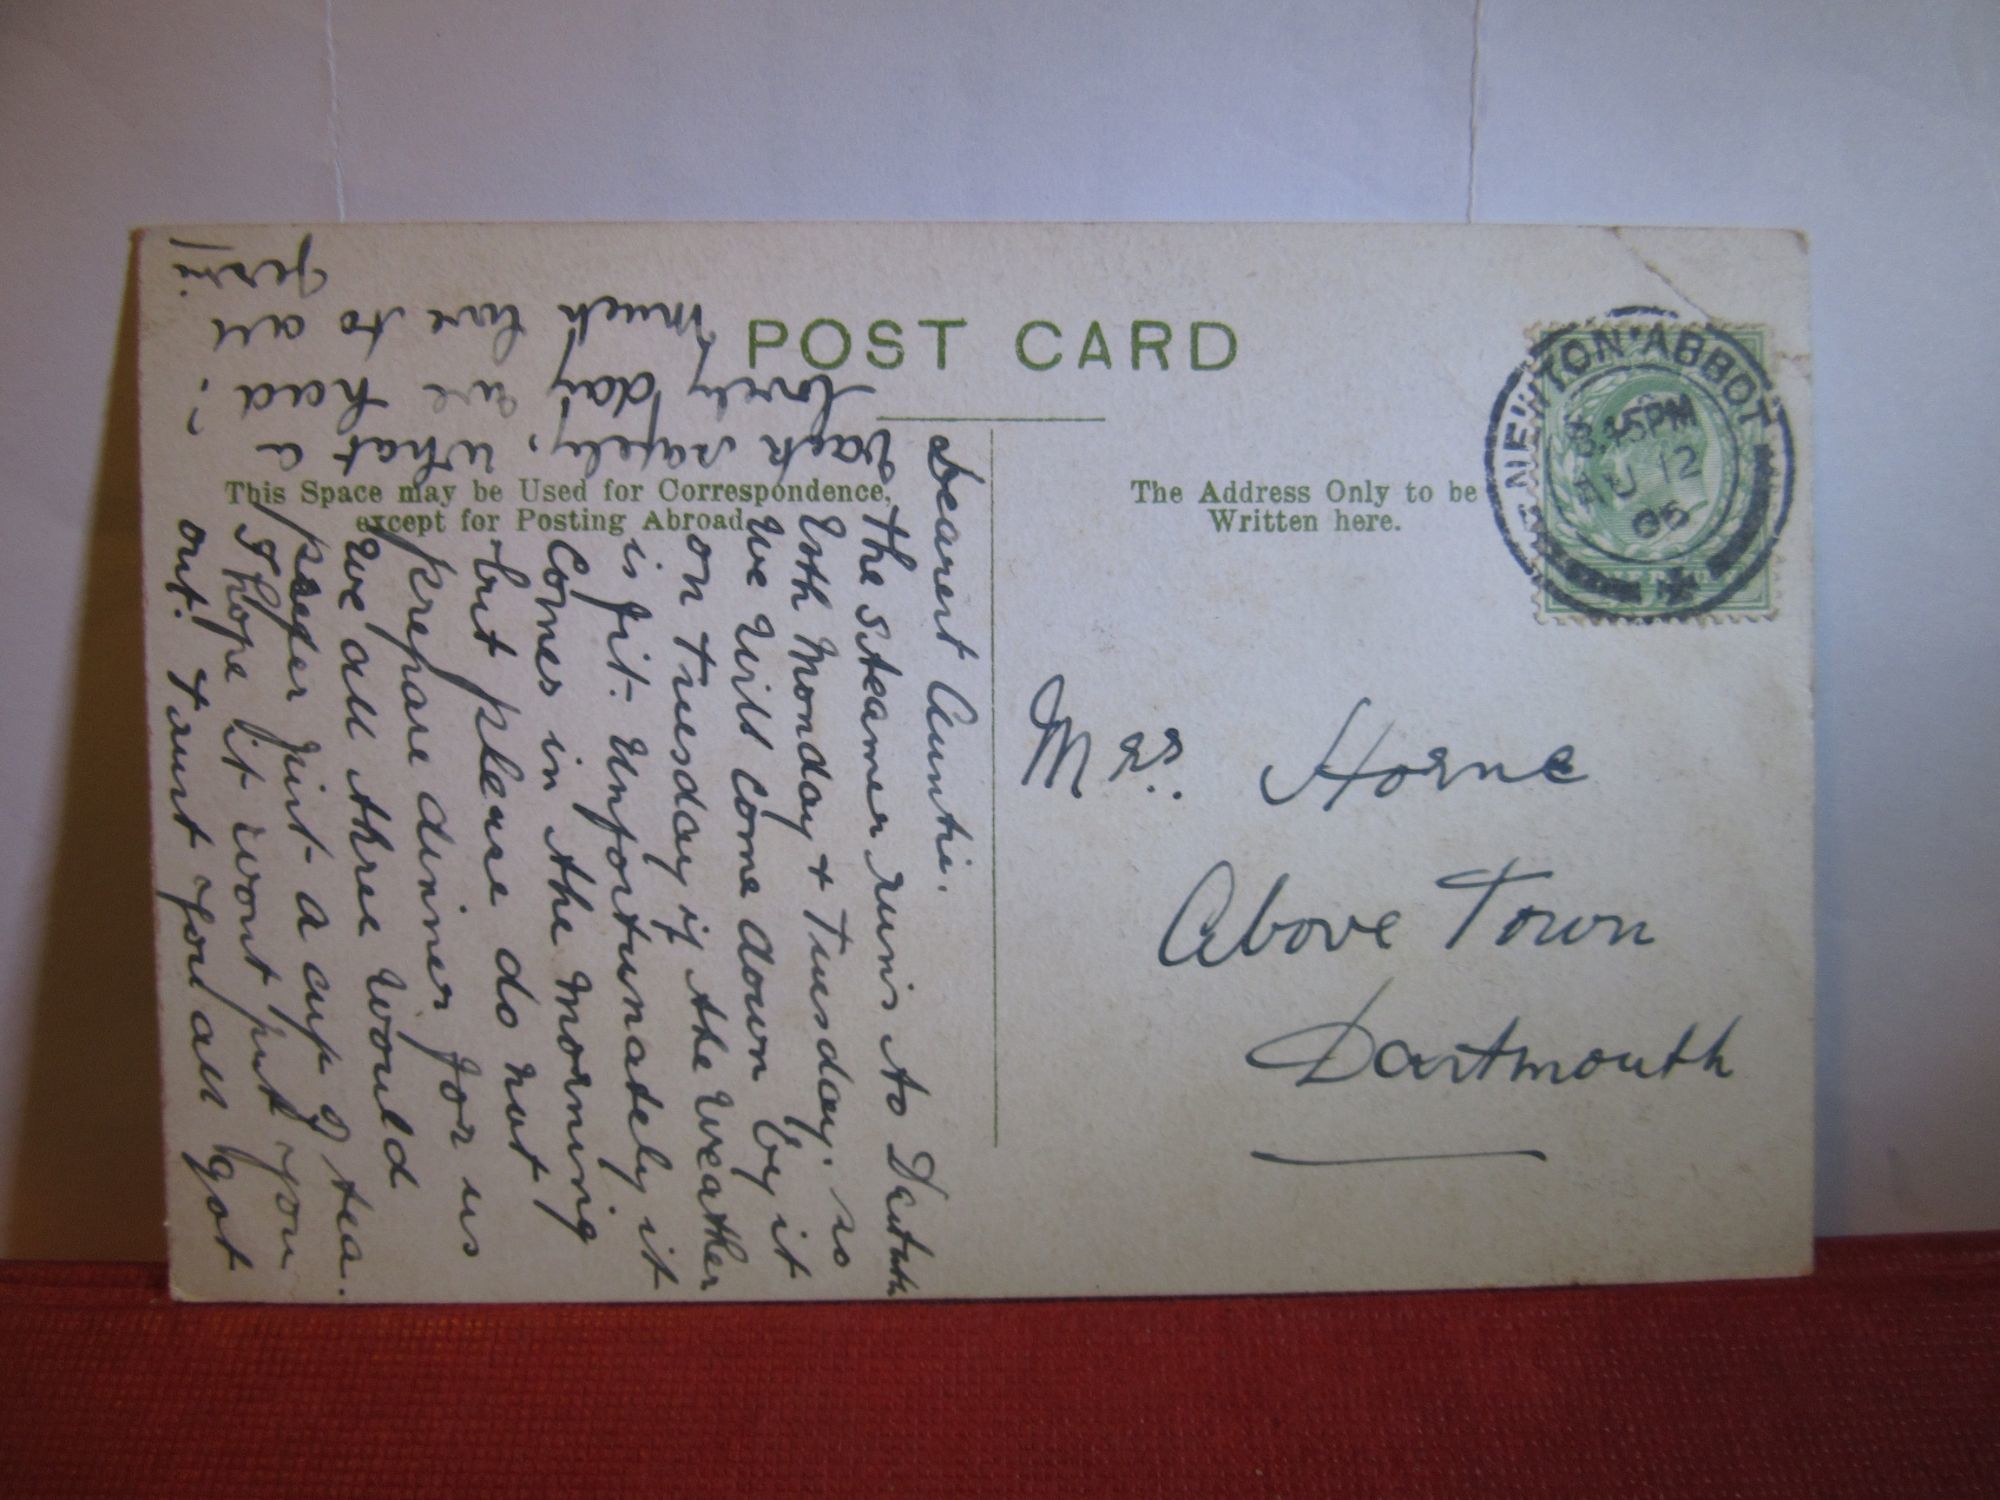 POST CARD
This Space may be Used for Correspondence,
except for Posting Abroad.
The Address Only to be
Written here.
NEWTON ABBOT
8.15PM
AU 12
06
Mrs. Horne
Above Town
Dartmouth
Dearest Auntie.
The Steamer runs to Dartmth
Both Monday & Tuesday. so
We Will Come down by it
on Tuesday if the Weather
is fit. Unfortunately it
Comes in the Morning
but please do not
prepare dinner for us
We all three Would
prefer just a cup of tea.
I hope it wont put you
out. Trust you all got
back safely, what a
lovely day we had!
Much love to all
Jessie